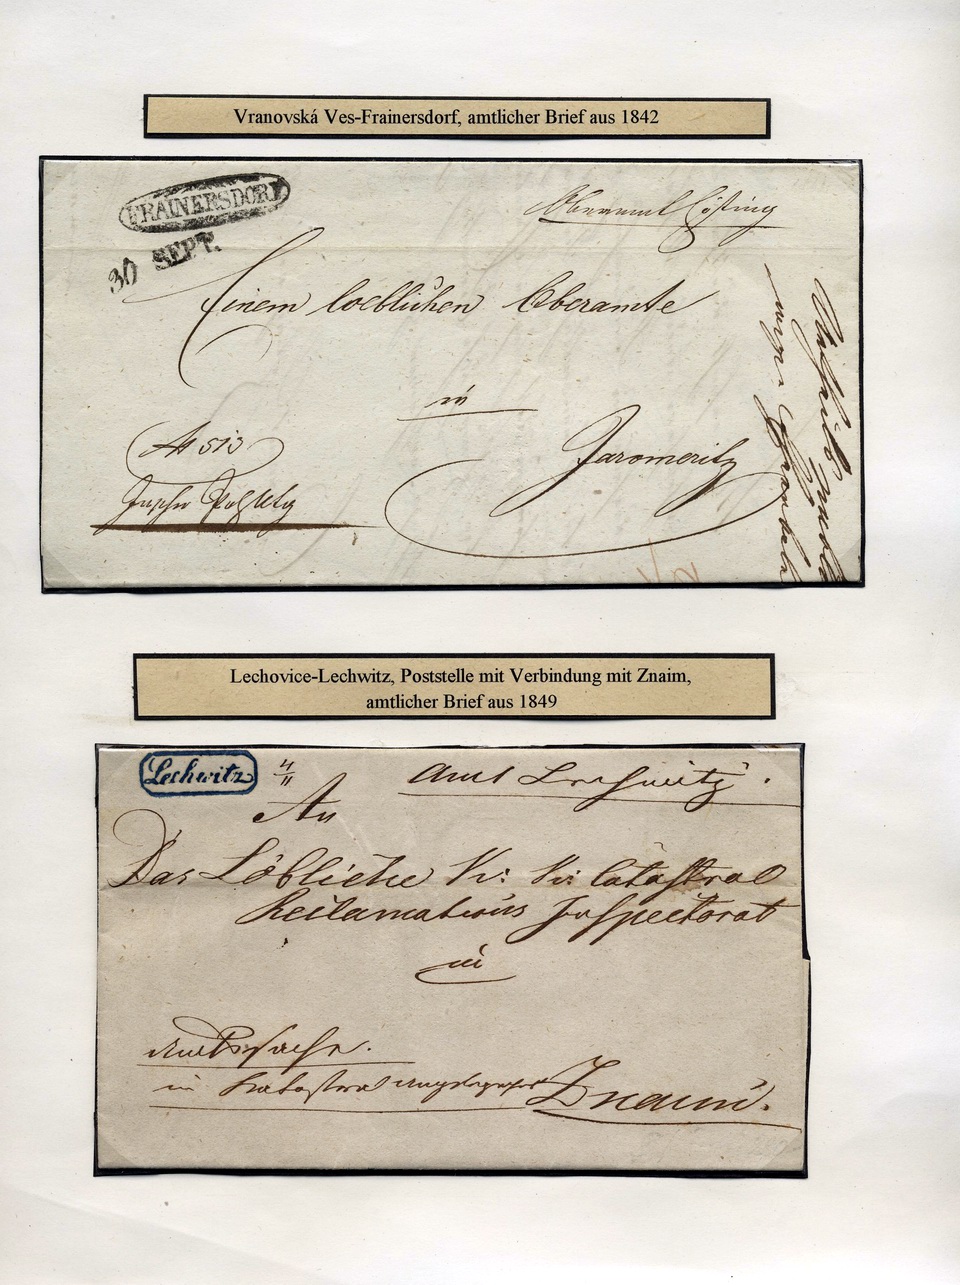 Vranovská Ves-Frainersdorf, amtlicher Brief aus 1842
FRAINERSDORF
30 SEPT.
Oberamt
Einem loeblichen Oberamte
in
Jaromeritz
№ 513
Lechovice-Lechwitz, Poststelle mit Verbindung mit Znaim,
amtlicher Brief aus 1849
Lechwitz
4/11
Amt Lechwitz.
An
Das Löbliche K: K: Catastral
Reclamations Inspectorat
in
Amtssache.
in Katastral
Znaim.